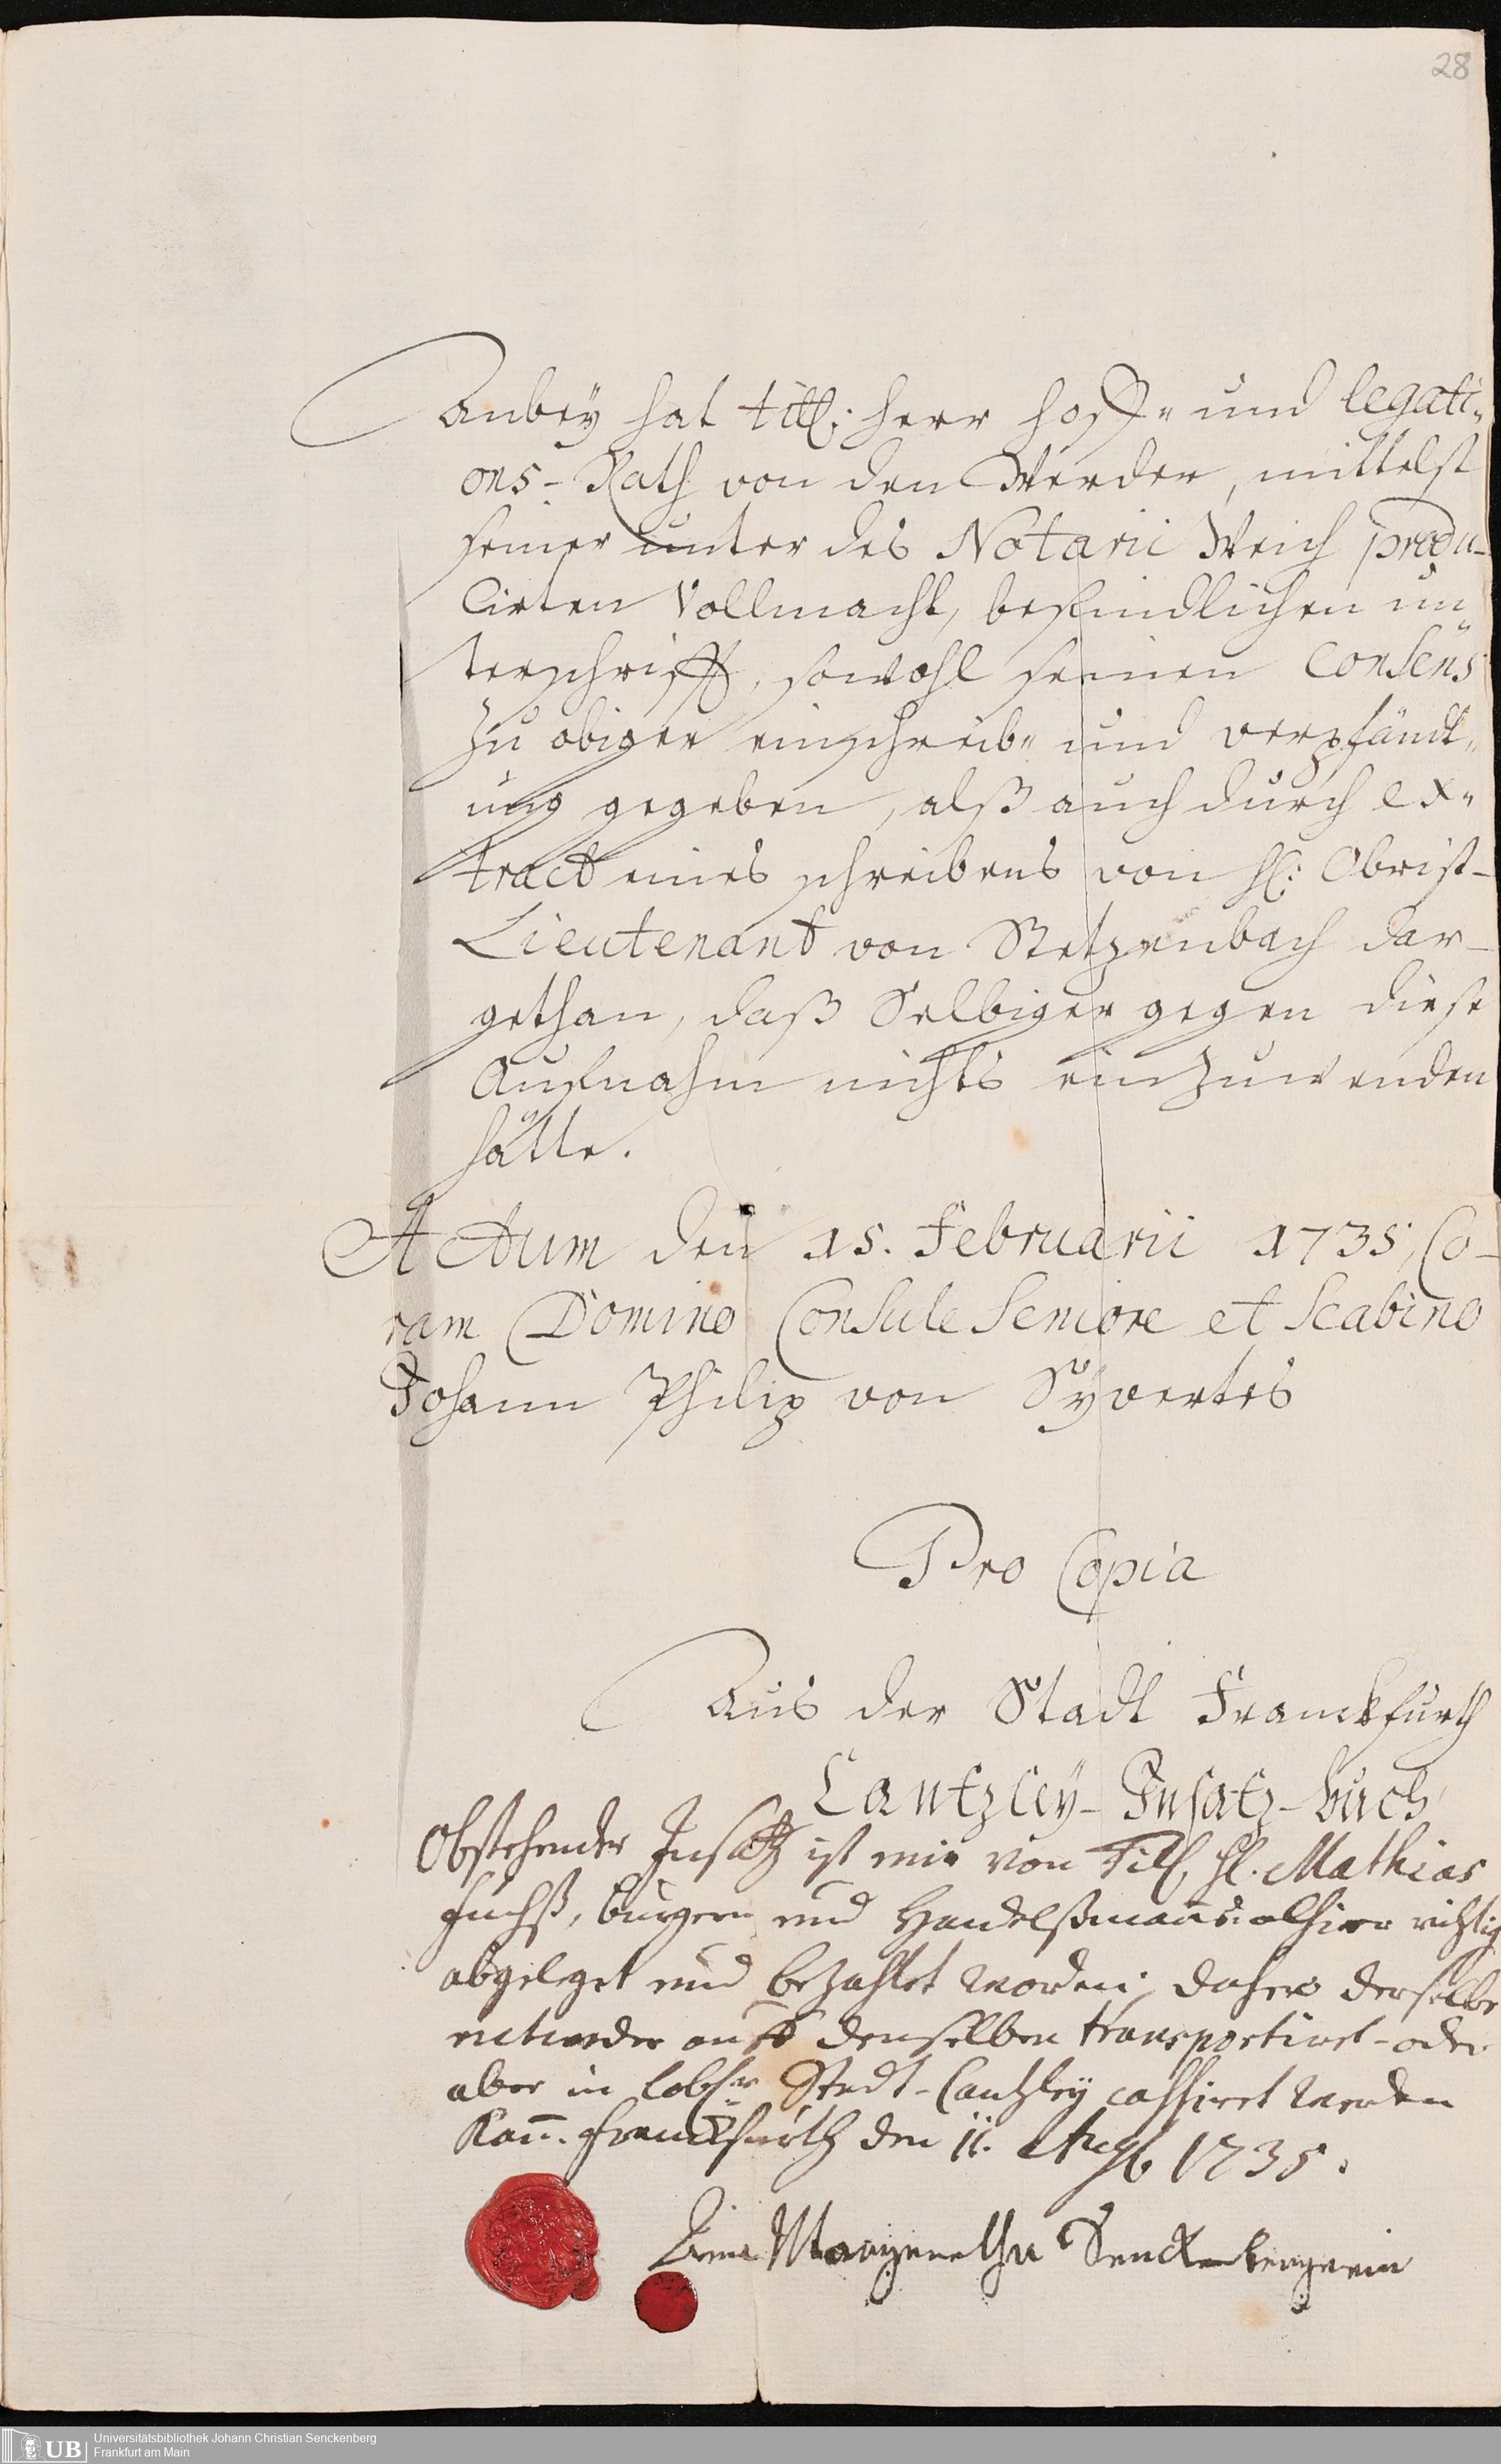 28
Anbey hat titl: Herr Hoff- und legati-
ons-Rath von den Werder, mittelst
seiner unter des Notarii Weich produ-
cirten Vollmacht, befindlichen un-
terschrifft, sowohl seinen Consens
zu obiger einschreib- und verpfändt-
ung gegeben, alß auch durch ex-
tract eines schreibens von H: Obrist-
Lieutenant von Stetzenbach dar-
gethan, daß Selbiger gegen diese
Aufnahm nichts einzuwenden
hätte.
Actum den 15. Februarii 1735, Co-
ram Domino Consule Seniore et Scabino
Johann Philip von Syvertes
Pro Copia
Aus der Stadt Franckfurth
Cantzley-Insatz-buch
Obstehender Insatz ist mir von Titl. H. Mathias
Fuchß, burgern und Handelßmann alhier richtig
abgeleget und bezahlet worden; daher derselbe
entweder auff denselben transportiret- oder
aber in lobl. Stadt-Cantzley cassiret werden
Kann. Franckfurth den 11. Aug. 1735.
Margaretha Senckenbergerin
UB
Universitätsbibliothek Johann Christian Senckenberg
Frankfurt am Main